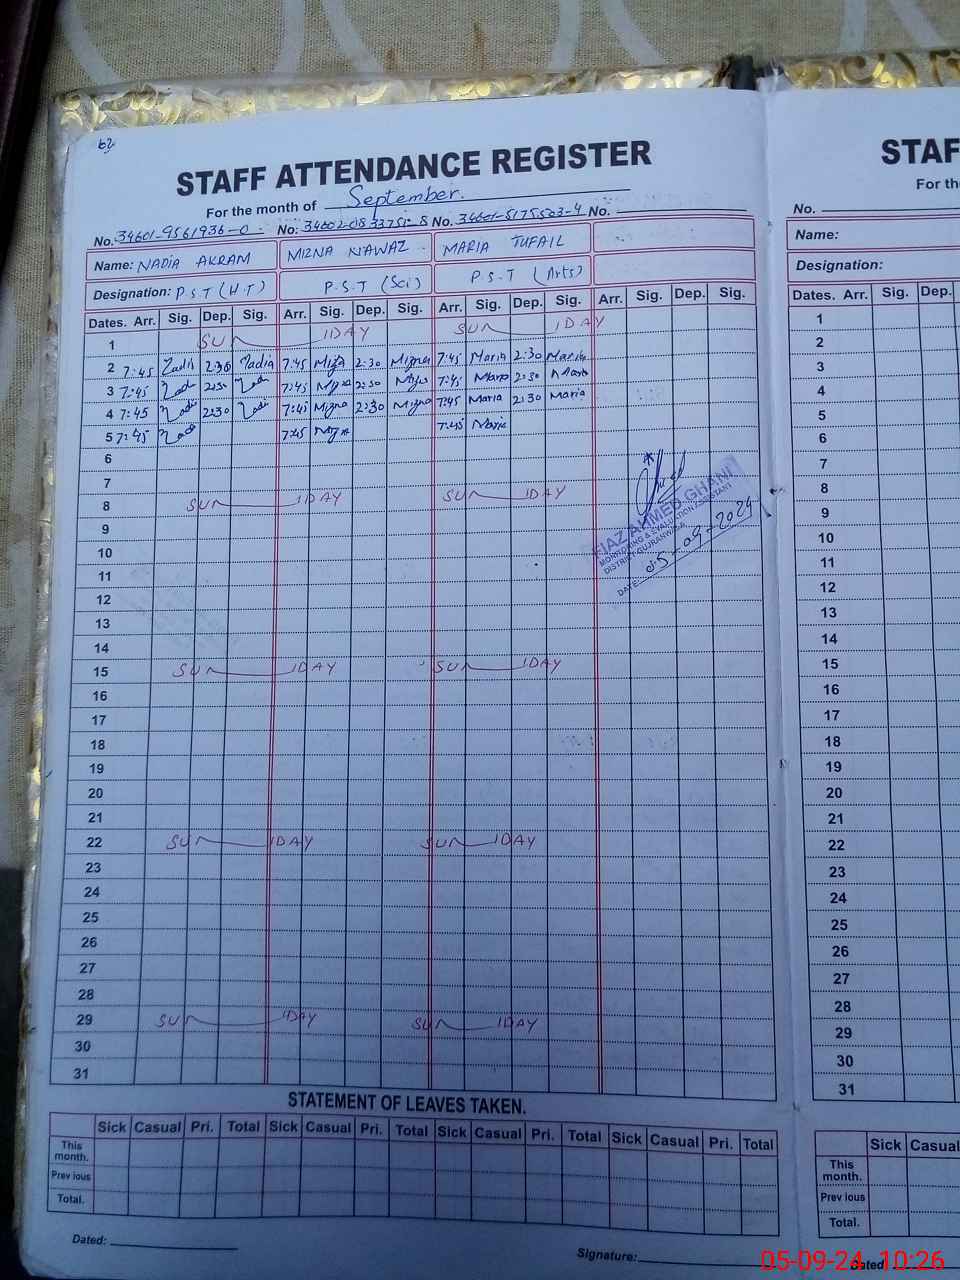 STAFF ATTENDANCE REGISTER
For the month of September.
No. 34601-9561936-0 No. No. 34601-5175503-4 No.
Name: NADIA AKRAM MIZNA NAWAZ MARIA TUFAIL
Designation: P.S.T (H.T) P.S.T (Sci) P.S.T (Arts)
Dates. Arr. Sig. Dep. Sig. Arr. Sig. Dep. Sig. Arr. Sig. Dep. Sig. Arr. Sig. Dep. Sig.
1 SUNDAY SUNDAY
2 7:45 2:30 Nadia 7:45 Mizna 2:30 Mizna 7:45 Maria 2:30 Maria
3 7:45 2:30 7:45 2:30 7:45 Maria 2:30 Maria
4 7:45 2:30 7:45 Mizna 2:30 Mizna 7:45 Maria 2:30 Maria
5 7:45 7:45 7:45 Maria
6
7
8 SUNDAY SUNDAY
9
10
11
12
13
14
15 SUNDAY SUNDAY
16
17
18
19
20
21
22 SUNDAY SUNDAY
23
24
25
26
27
28
29 SUNDAY SUNDAY
30
31
AHMED GHANI
MONITORING & EVALUATION ASSISTANT
DISTRICT GUJRANWALA
DATE: 05-09-2024
STATEMENT OF LEAVES TAKEN.
Sick Casual Pri. Total Sick Casual Pri. Total Sick Casual Pri. Total Sick Casual Pri. Total
This month.
Prev ious
Total.
Dated: Signature:
STAF
For th
No.
Name:
Designation:
Dates. Arr. Sig. Dep.
1
2
3
4
5
6
7
8
9
10
11
12
13
14
15
16
17
18
19
20
21
22
23
24
25
26
27
28
29
30
31
Sick Casual
This month.
Prev ious
Total.
Dated
05-09-24 10:26